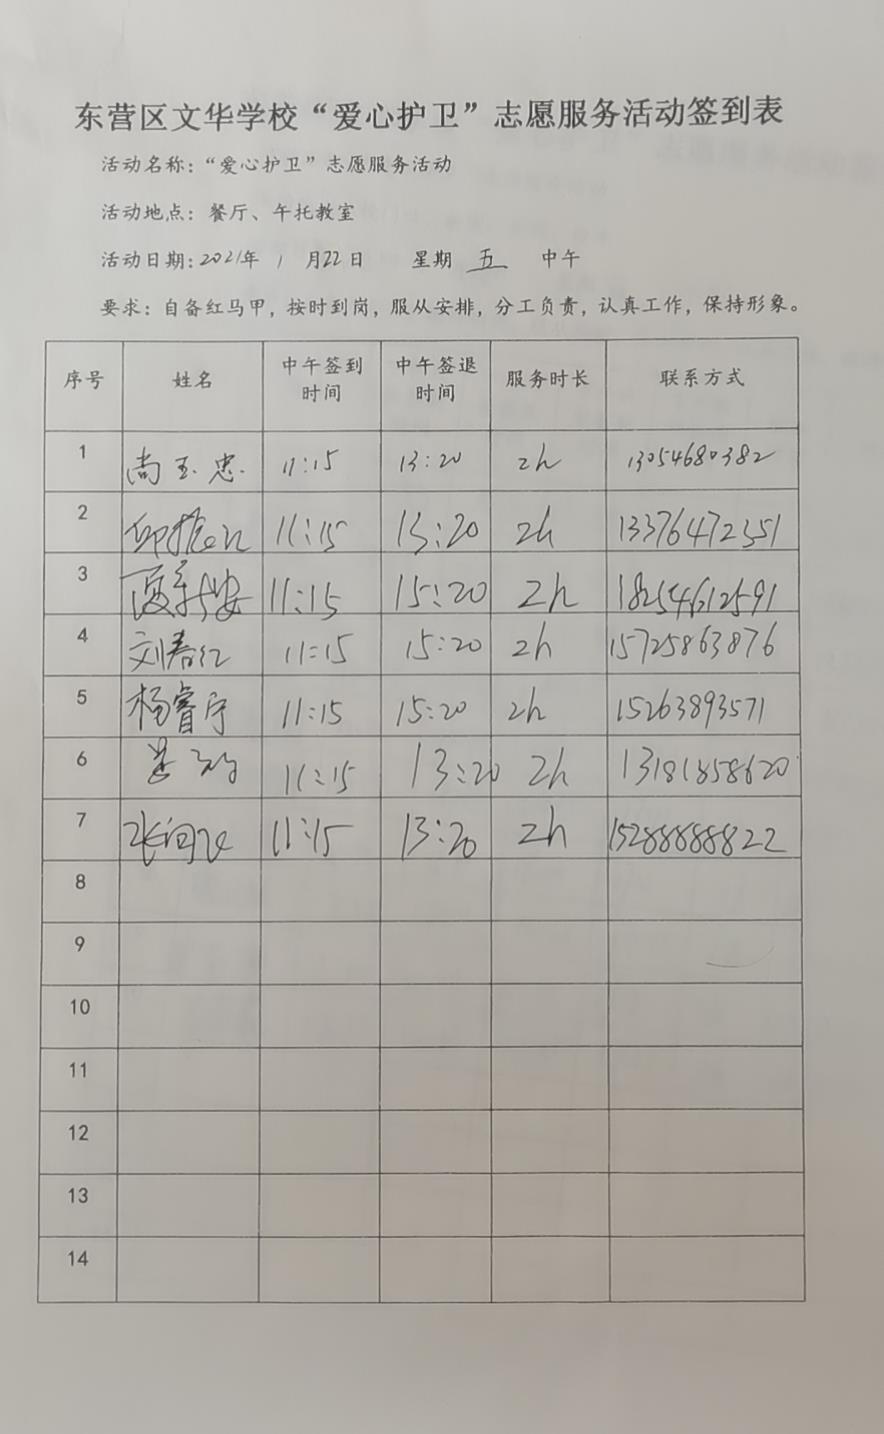 东营区文华学校“爱心护卫”志愿服务活动签到表
活动名称：“爱心护卫”志愿服务活动
活动地点：餐厅、午托教室
活动日期：2021年 1 月22日 星期 五 中午
要求：自备红马甲，按时到岗，服从安排，分工负责，认真工作，保持形象。
序号 姓名 中午签到时间 中午签退时间 服务时长 联系方式
1 尚玉忠 11:15 13:20 2h 13054680382
2 11:15 13:20 2h 13376472351
3 11:15 15:20 2h 18254612591
4 刘春红 11:15 15:20 2h 15725863876
5 杨睿宁 11:15 15:20 2h 15263893571
6 11:15 13:20 2h 13181858620
7 11:15 13:20 2h 15288888822
8
9
10
11
12
13
14